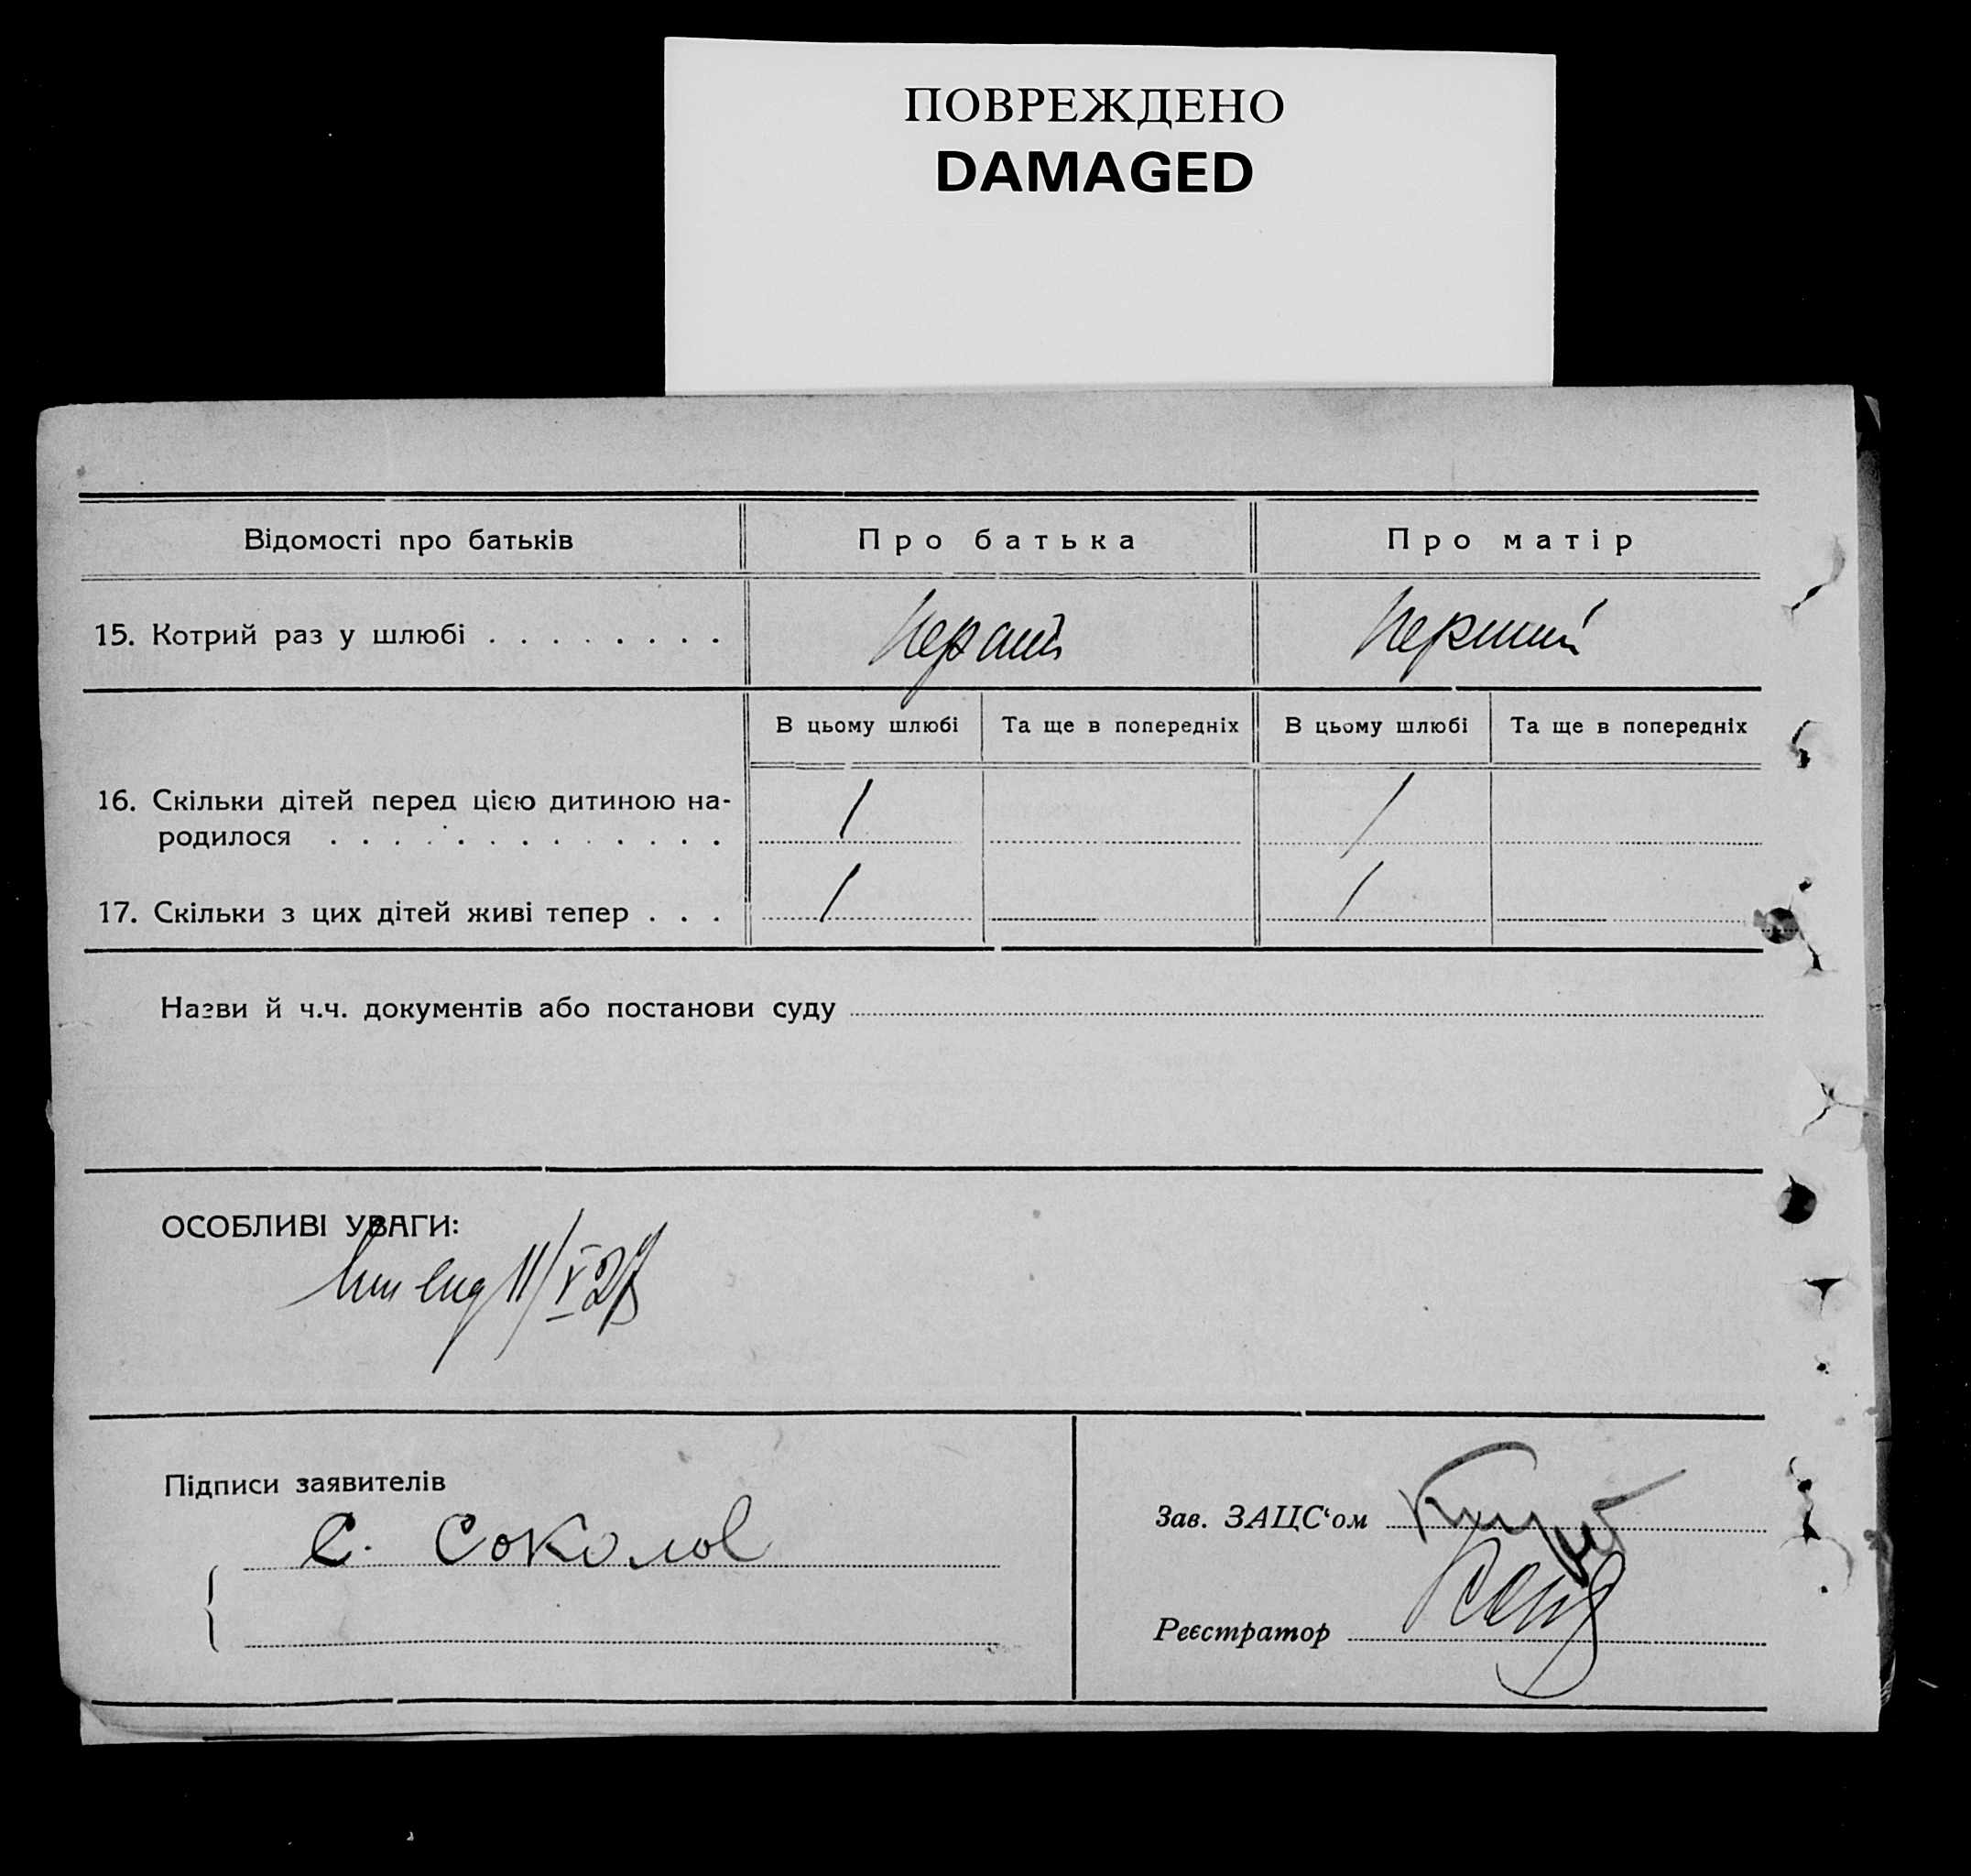 ПОВРЕЖДЕНО
DAMAGED
Відомості про батьків
Про батька
Про матір
15. Котрий раз у шлюбі . . . . . . . .
Перший
Перший
В цьому шлюбі
Та ще в попередніх
В цьому шлюбі
Та ще в попередніх
16. Скільки дітей перед цією дитиною на-
родилося . . . . . . . . . . . . .
1
1
17. Скільки з цих дітей живі тепер . . .
1
1
Назви й ч.ч. документів або постанови суду
ОСОБЛИВІ УВАГИ:
11/V
Підписи заявителів
С. Соколов
Зав. ЗАЦС‘ом
Реєстратор